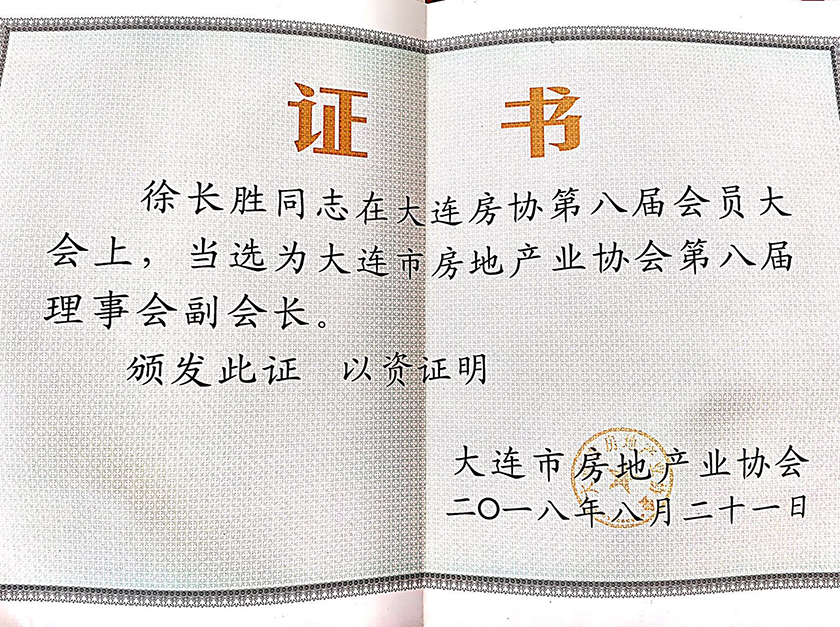 证书
徐长胜同志在大连房协第八届会员大
会上，当选为大连市房地产业协会第八届
理事会副会长。
颁发此证 以资证明
大连市房地产业协会
二〇一八年八月二十一日